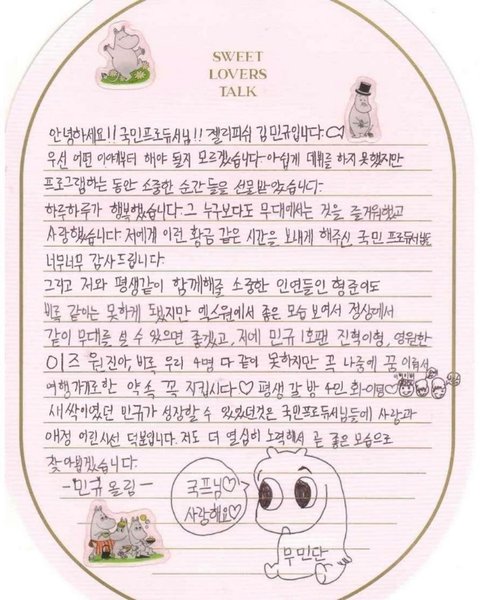 SWEET
LOVERS
TALK
안녕하세요!! 국민프로듀서님!! 젤리피쉬 김민규입니다♡
우선 어떤 이야기부터 해야 될지 모르겠습니다 아쉽게 데뷔를 하지 못했지만
프로그램하는 동안 소중한 순간들을 선물받았습니다.
하루하루가 행복했습니다. 그 누구보다도 무대에서는 것을 즐거워했고
사랑했습니다. 저에게 이런 황금 같은 시간을 보내게 해주신 국민 프로듀서님들
너무너무 감사드립니다.
그리고 저와 평생같이 함께해줄 소중한 인연들인 형준이도
비록 같이는 못하게 됐지만 엑스원에서 좋은 모습 보여서 정상에서
같이 무대를 설 수 있으면 좋겠고, 저에 민규 1호팬 진혁이형, 영원한
이즈 원진아, 비록 우리 4명 다 같이 못하지만 꼭 나중에 꿈 이뤄서
여행가기로한 약속 꼭 지킵시다♡ 평생 갈 방 4인
새싹이였던 민규가 성장할 수 있었던것은 국민프로듀서님들에 사랑과
애정 어린시선 덕분입니다. 저도 더 열심히 노력해서 곧 좋은 모습으로
찾아뵙겠습니다.
-민규 올림-
국프님♡
사랑해요♡
무민단